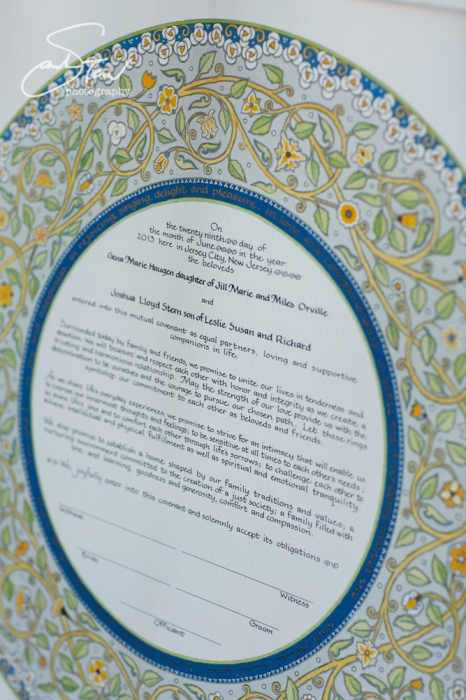 photography
rejoicing singing delight and pleasure in love
On
the twenty ninth day of
the month of June in the year
2013 here in Jersey City, New Jersey
the beloveds
Gena Marie Haugen daughter of Jill Marie and Miles Orville
and
Joshua Lloyd Stern son of Leslie Susan and Richard
entered into this mutual covenant as equal partners, loving and supportive
companions in life.
Surrounded today by family and friends, we promise to unite our lives in tenderness and
devotion. We will treasure and respect each other with honor and integrity as we create a
trusting and harmonious relationship. May the strength of our love provide us with the
determination to be ourselves and the courage to pursue our chosen path. Let these rings
symbolize our commitment to each other as beloveds and friends.
As we share life's everyday experiences, we promise to strive for an intimacy that will enable us
to express our innermost thoughts and feelings; to be sensitive at all times to each other's needs;
to share life's joys and to comfort each other through life's sorrows; to challenge each other to
achieve intellectual and physical fulfillment as well as spiritual and emotional tranquility.
We also promise to establish a home shaped by our family traditions and values; a
nurturing environment committed to the creation of a just society; a family filled with
love and learning, goodness and generosity, comfort and compassion.
We joyfully enter into this covenant and solemnly accept its obligations
Witness
Witness
Bride
Groom
Officiant